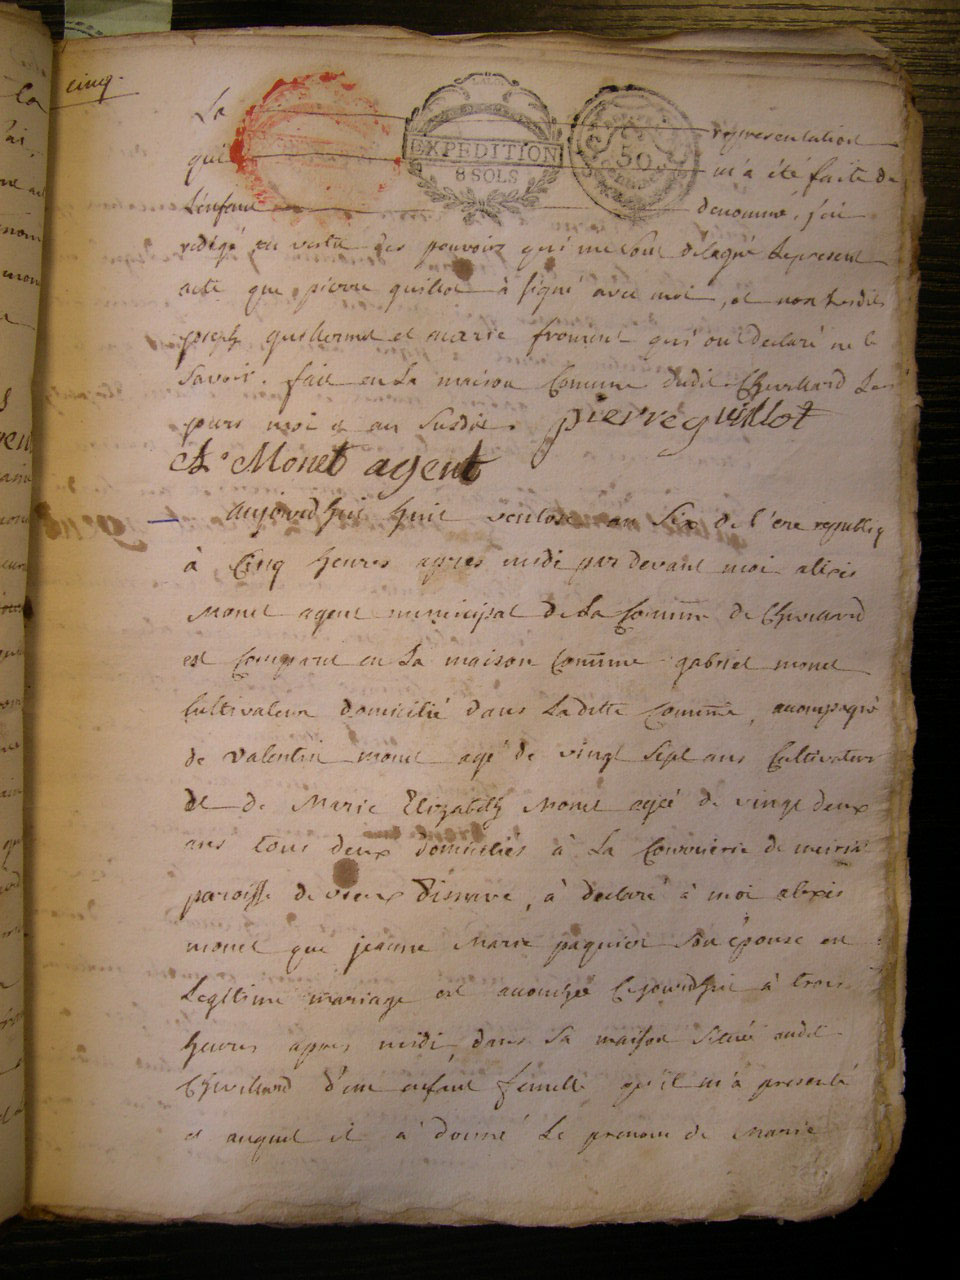 cinq.
La representation
qui m'a été faite de
L'enfant denommé, j'ai
redigé en vertu des pouvoirs qui me sont délegué Le present
acte que pierre guillot à signé avec moi, et non Lesdits
joseph guillermet et marie froment qui ont declaré ne le
savoir. fait en La maison Commune dudit Les
jours mois et an susdits. pierre guillot
Ax. Monet agent
EXPEDITION
8 SOLS
50
aujourdhui huit ventose an Six de l'ere republiq
à Cinq heures apres midi par devant moi alexis
Monet agent municipal de La Comm̃ne de
est Comparut en La maison Com̃mune gabriel monet
Cultivateur domicilié dans Laditte Comm̃ne, acompagné
de valentin monet agé de vingt Sept ans Cultivateur
et de Marie Elizabeth Monet agée de vingt deux
ans tous deux domiciliés à La de
paroisse de vieux , à declaré à moi alexis
monet que jeanne Marie paquier Son épouse en
Legitime mariage est acouchée Cejourdhui à trois
heures apres midi, dans sa maison Située audit
d'un enfant femelle qu'il m'a presenté
et auquel il a donné Le prenom de Marie